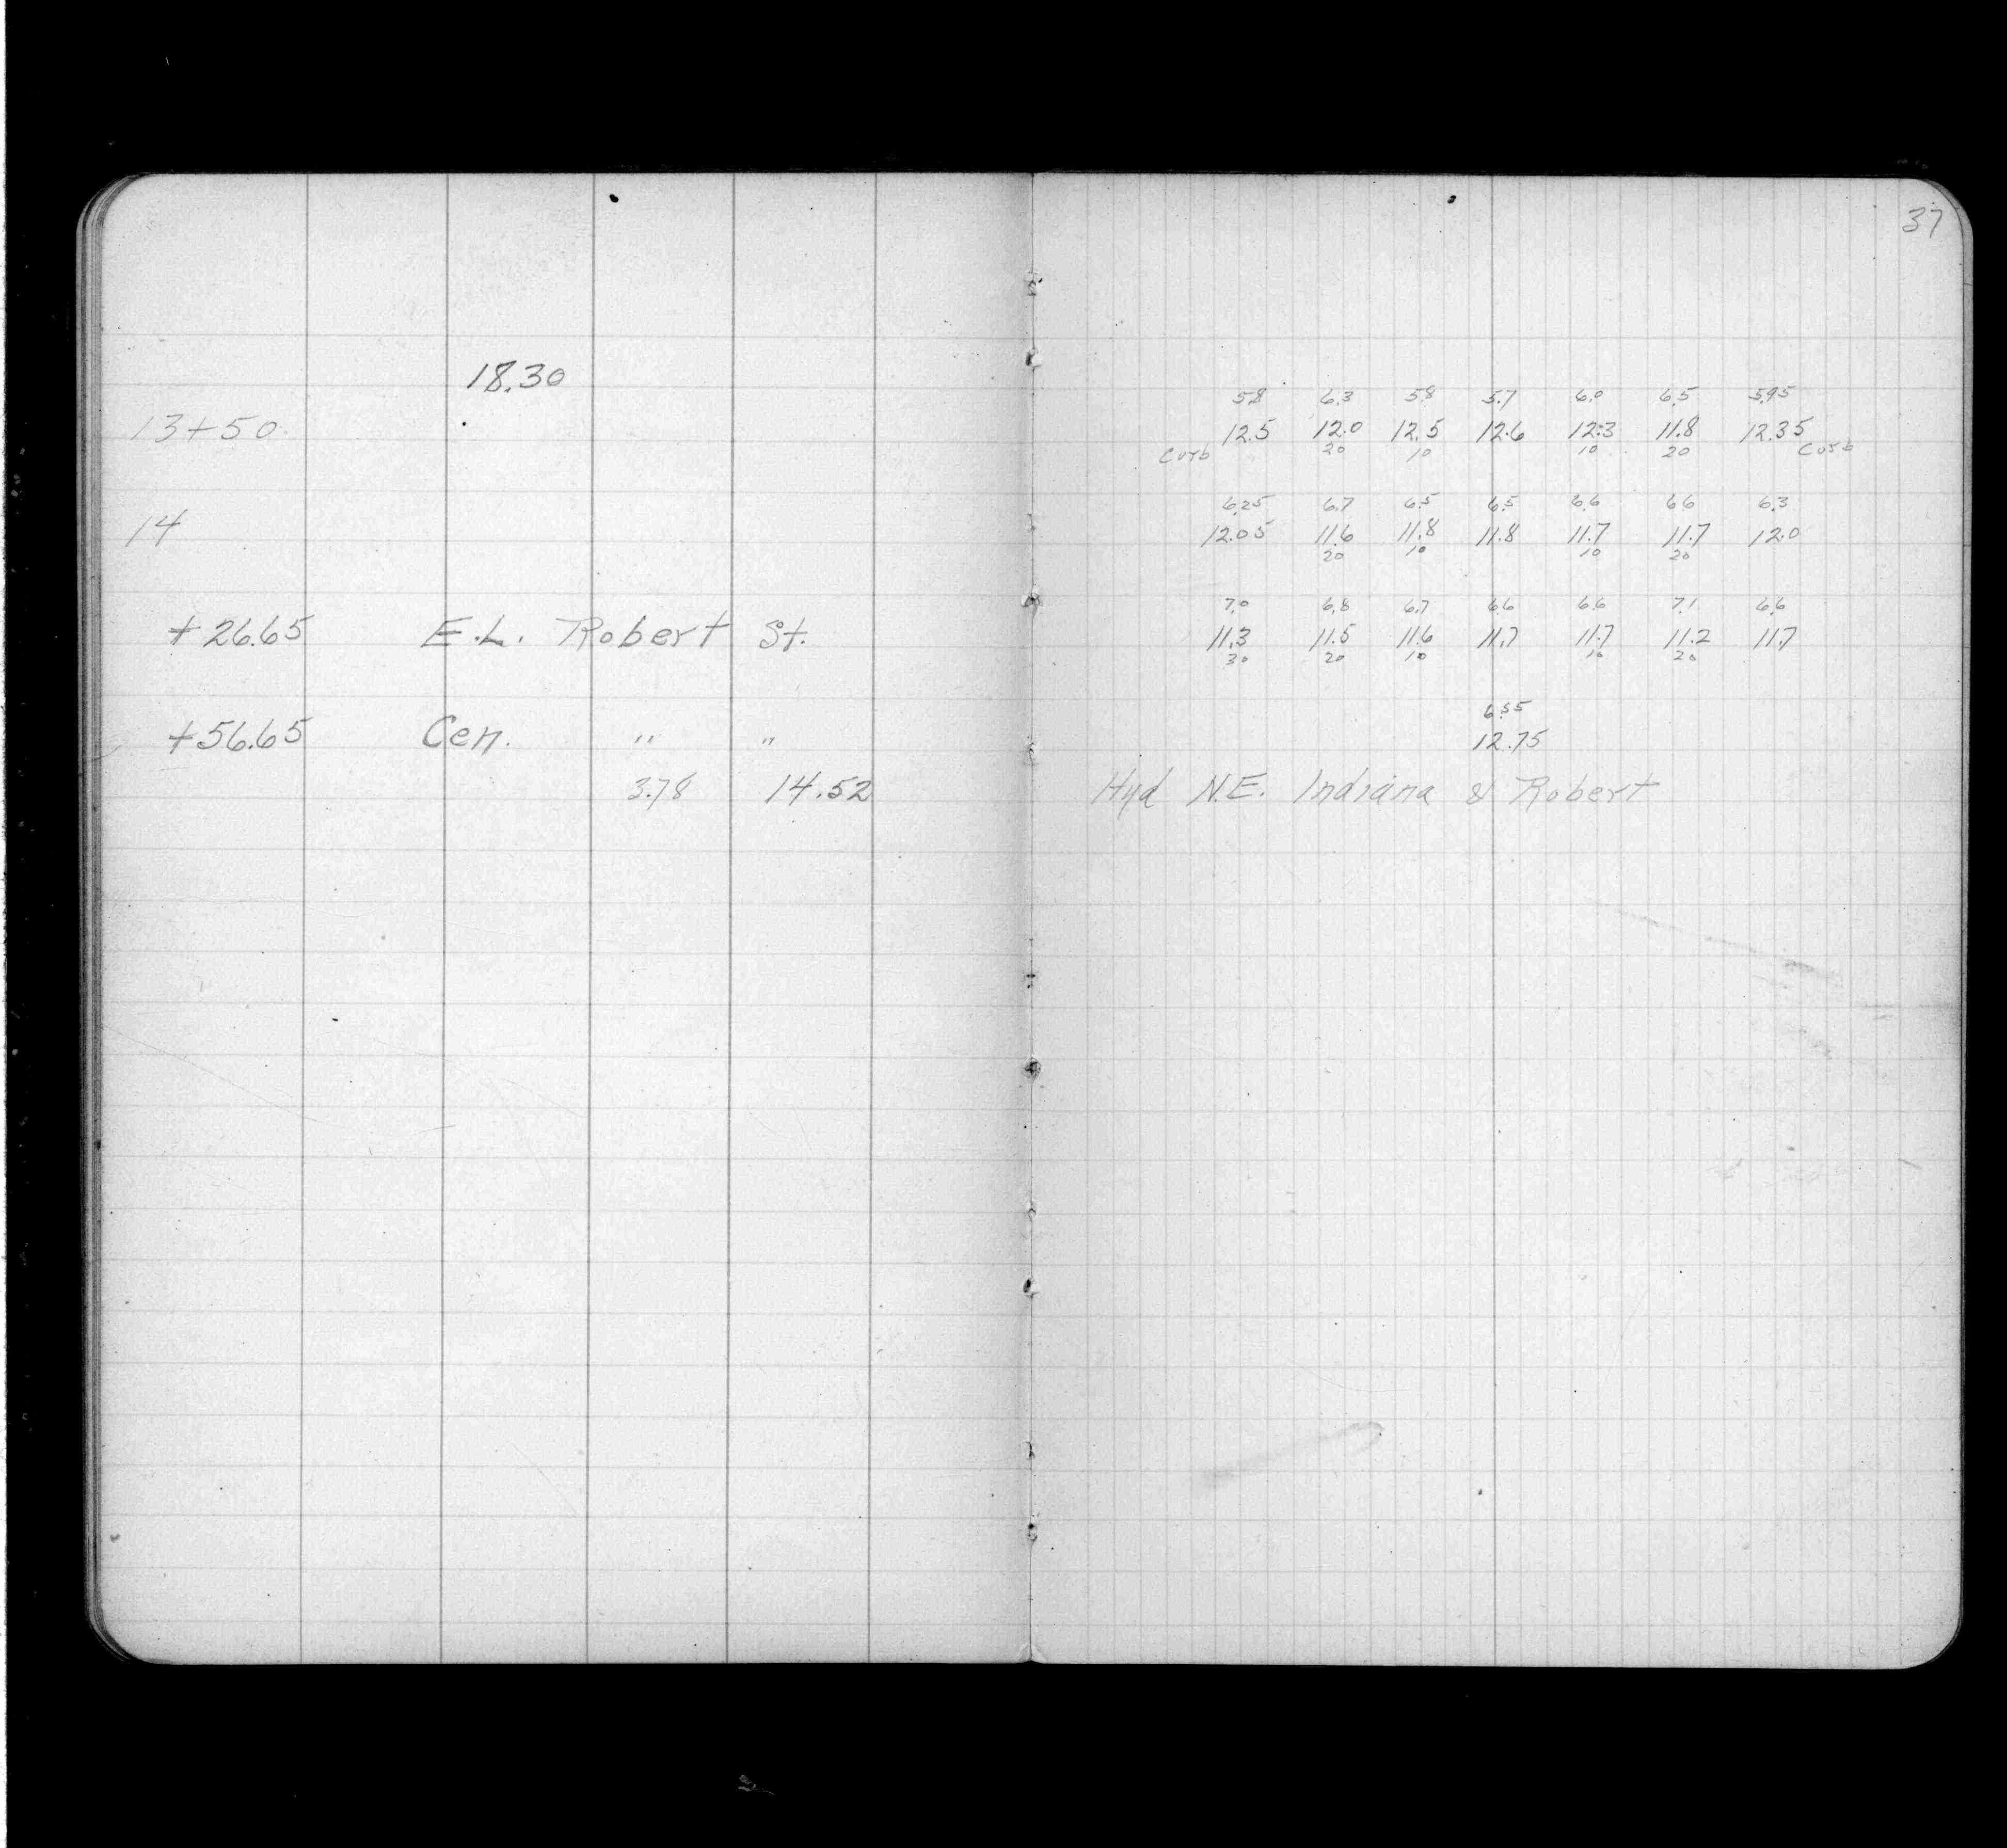 37
18.30
5.8 6.3 5.8 5.7 6.0 6.5 5.95
13+50 12.5 12.0 12.5 12.6 12.3 11.8 12.35
Curb 20 10 10 20 Curb
6.25 6.7 6.5 6.5 6.6 6.6 6.3
14 12.05 11.6 11.8 11.8 11.7 11.7 12.0
20 10 10 20
7.0 6.8 6.7 6.6 6.6 7.1 6.6
+26.65 E.L. Robert St. 11.3 11.5 11.6 11.7 11.7 11.2 11.7
30 20 10 10 20
6.55
+56.65 Cen. " " 12.75
3.78 14.52 Hyd N.E. Indiana & Robert